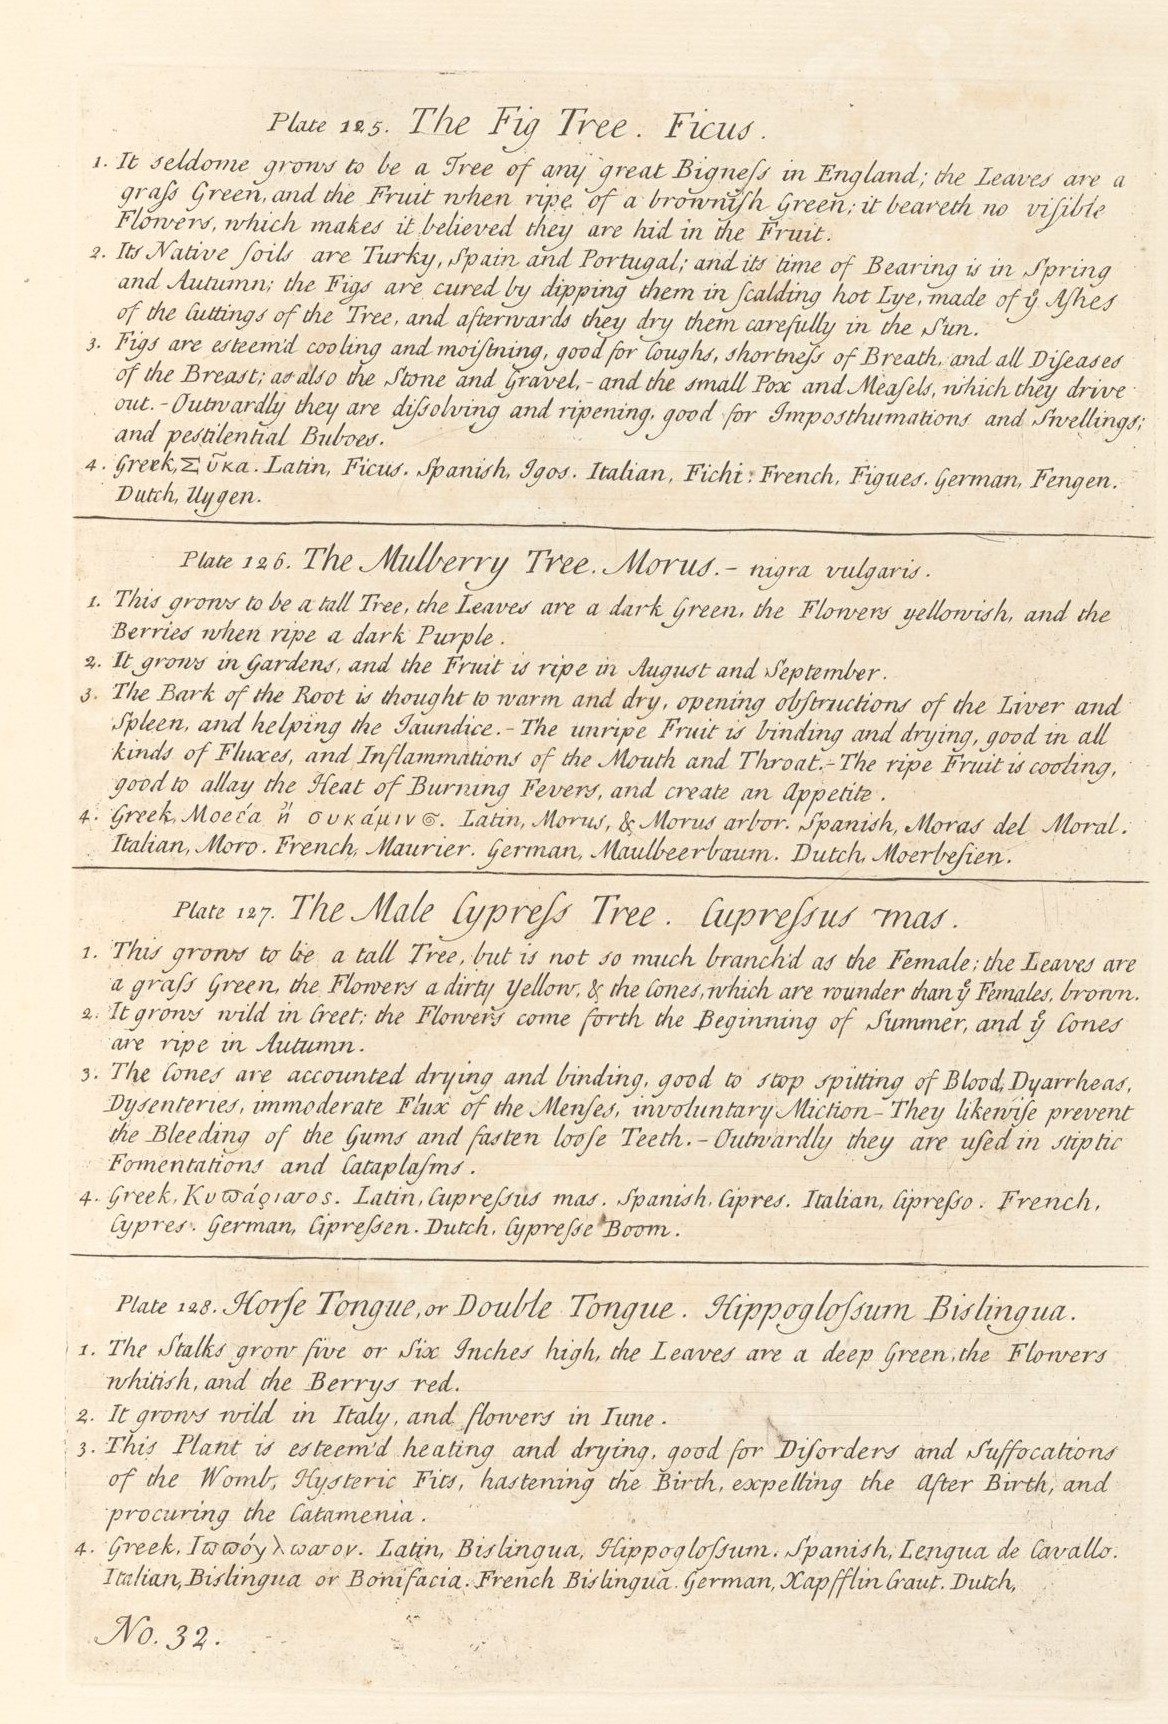 Plate 125. The Fig Tree. Ficus.
1. It seldome grows to be a Tree of any great Bigneſs in England; the Leaves are a
graſs Green, and the Fruit when ripe of a browniſh Green; it beareth no viſible
Flowers, which makes it believed they are hid in the Fruit.
2. Its Native ſoils are Turky, Spain and Portugal; and its time of Bearing is in Spring
and Autumn; the Figs are cured by dipping them in ſcalding hot Lye, made of ẙ Aſhes
of the Cuttings of the Tree, and afterwards they dry them carefully in the Sun.
3. Figs are esteem'd cooling and moiſtning, good for Coughs, shortneſs of Breath, and all Diſeases
of the Breast; as also the Stone and Gravel, - and the small Pox and Meaſels, which they drive
out. - Outwardly they are diſsolving and ripening, good for Imposthumations and Swellings;
and pestilential Buboes.
4. Greek, Σῦκα. Latin, Ficus. Spanish, Igos. Italian, Fichi. French, Figues. German, Fengen.
Dutch, Uygen.
Plate 126. The Mulberry Tree. Morus. - nigra vulgaris.
1. This grows to be a tall Tree, the Leaves are a dark Green, the Flowers yellowish, and the
Berries when ripe a dark Purple.
2. It grows in Gardens, and the Fruit is ripe in August and September.
3. The Bark of the Root is thought to warm and dry, opening obſtructions of the Liver and
Spleen, and helping the Jaundice. - The unripe Fruit is binding and drying, good in all
kinds of Fluxes, and Inflammations of the Mouth and Throat. - The ripe Fruit is cooling,
good to allay the Heat of Burning Fevers, and create an Appetite.
4. Greek, Μορέα ἢ συκάμινο̣ς. Latin, Morus, & Morus arbor. Spanish, Moras del Moral.
Italian, Moro. French, Maurier. German, Maulbeerbaum. Dutch, Moerbeſien.
Plate 127. The Male Cypreſs Tree. Cupreſsus mas.
1. This grows to be a tall Tree, but is not so much branch'd as the Female; the Leaves are
a graſs Green, the Flowers a dirty Yellow, & the Cones, which are rounder than ẙ Females, brown.
2. It grows wild in Creet; the Flowers come forth the Beginning of Summer, and ẙ Cones
are ripe in Autumn.
3. The Cones are accounted drying and binding, good to stop spitting of Blood, Dyarrheas,
Dysenteries, immoderate Flux of the Menſes, involuntary Miction - They likewiſe prevent
the Bleeding of the Gums and faſten looſe Teeth. - Outwardly they are uſed in stiptic
Fomentations and Cataplaſms.
4. Greek, Κυϖάρισσος. Latin, Cupreſsus mas. Spanish, Cipres. Italian, Cipreſso. French,
Cypres. German, Cipreſsen. Dutch, Cypreſse Boom.
Plate 128. Horſe Tongue, or Double Tongue. Hippogloſsum Bislingua.
1. The Stalks grow five or Six Inches high, the Leaves are a deep Green, the Flowers
whitish, and the Berrys red.
2. It grows wild in Italy, and flowers in Iune.
3. This Plant is esteem'd heating and drying, good for Diſorders and Suffocations
of the Womb, Hysteric Fits, hastening the Birth, expelling the After Birth, and
procuring the Catamenia.
4. Greek, Ιϖϖόγλωσσον. Latin, Bislingua, Hippogloſsum. Spanish, Lengua de Cavallo.
Italian, Bislingua or Bonifacia. French Bislingua. German, Xapfflin Craut. Dutch,
No. 32.